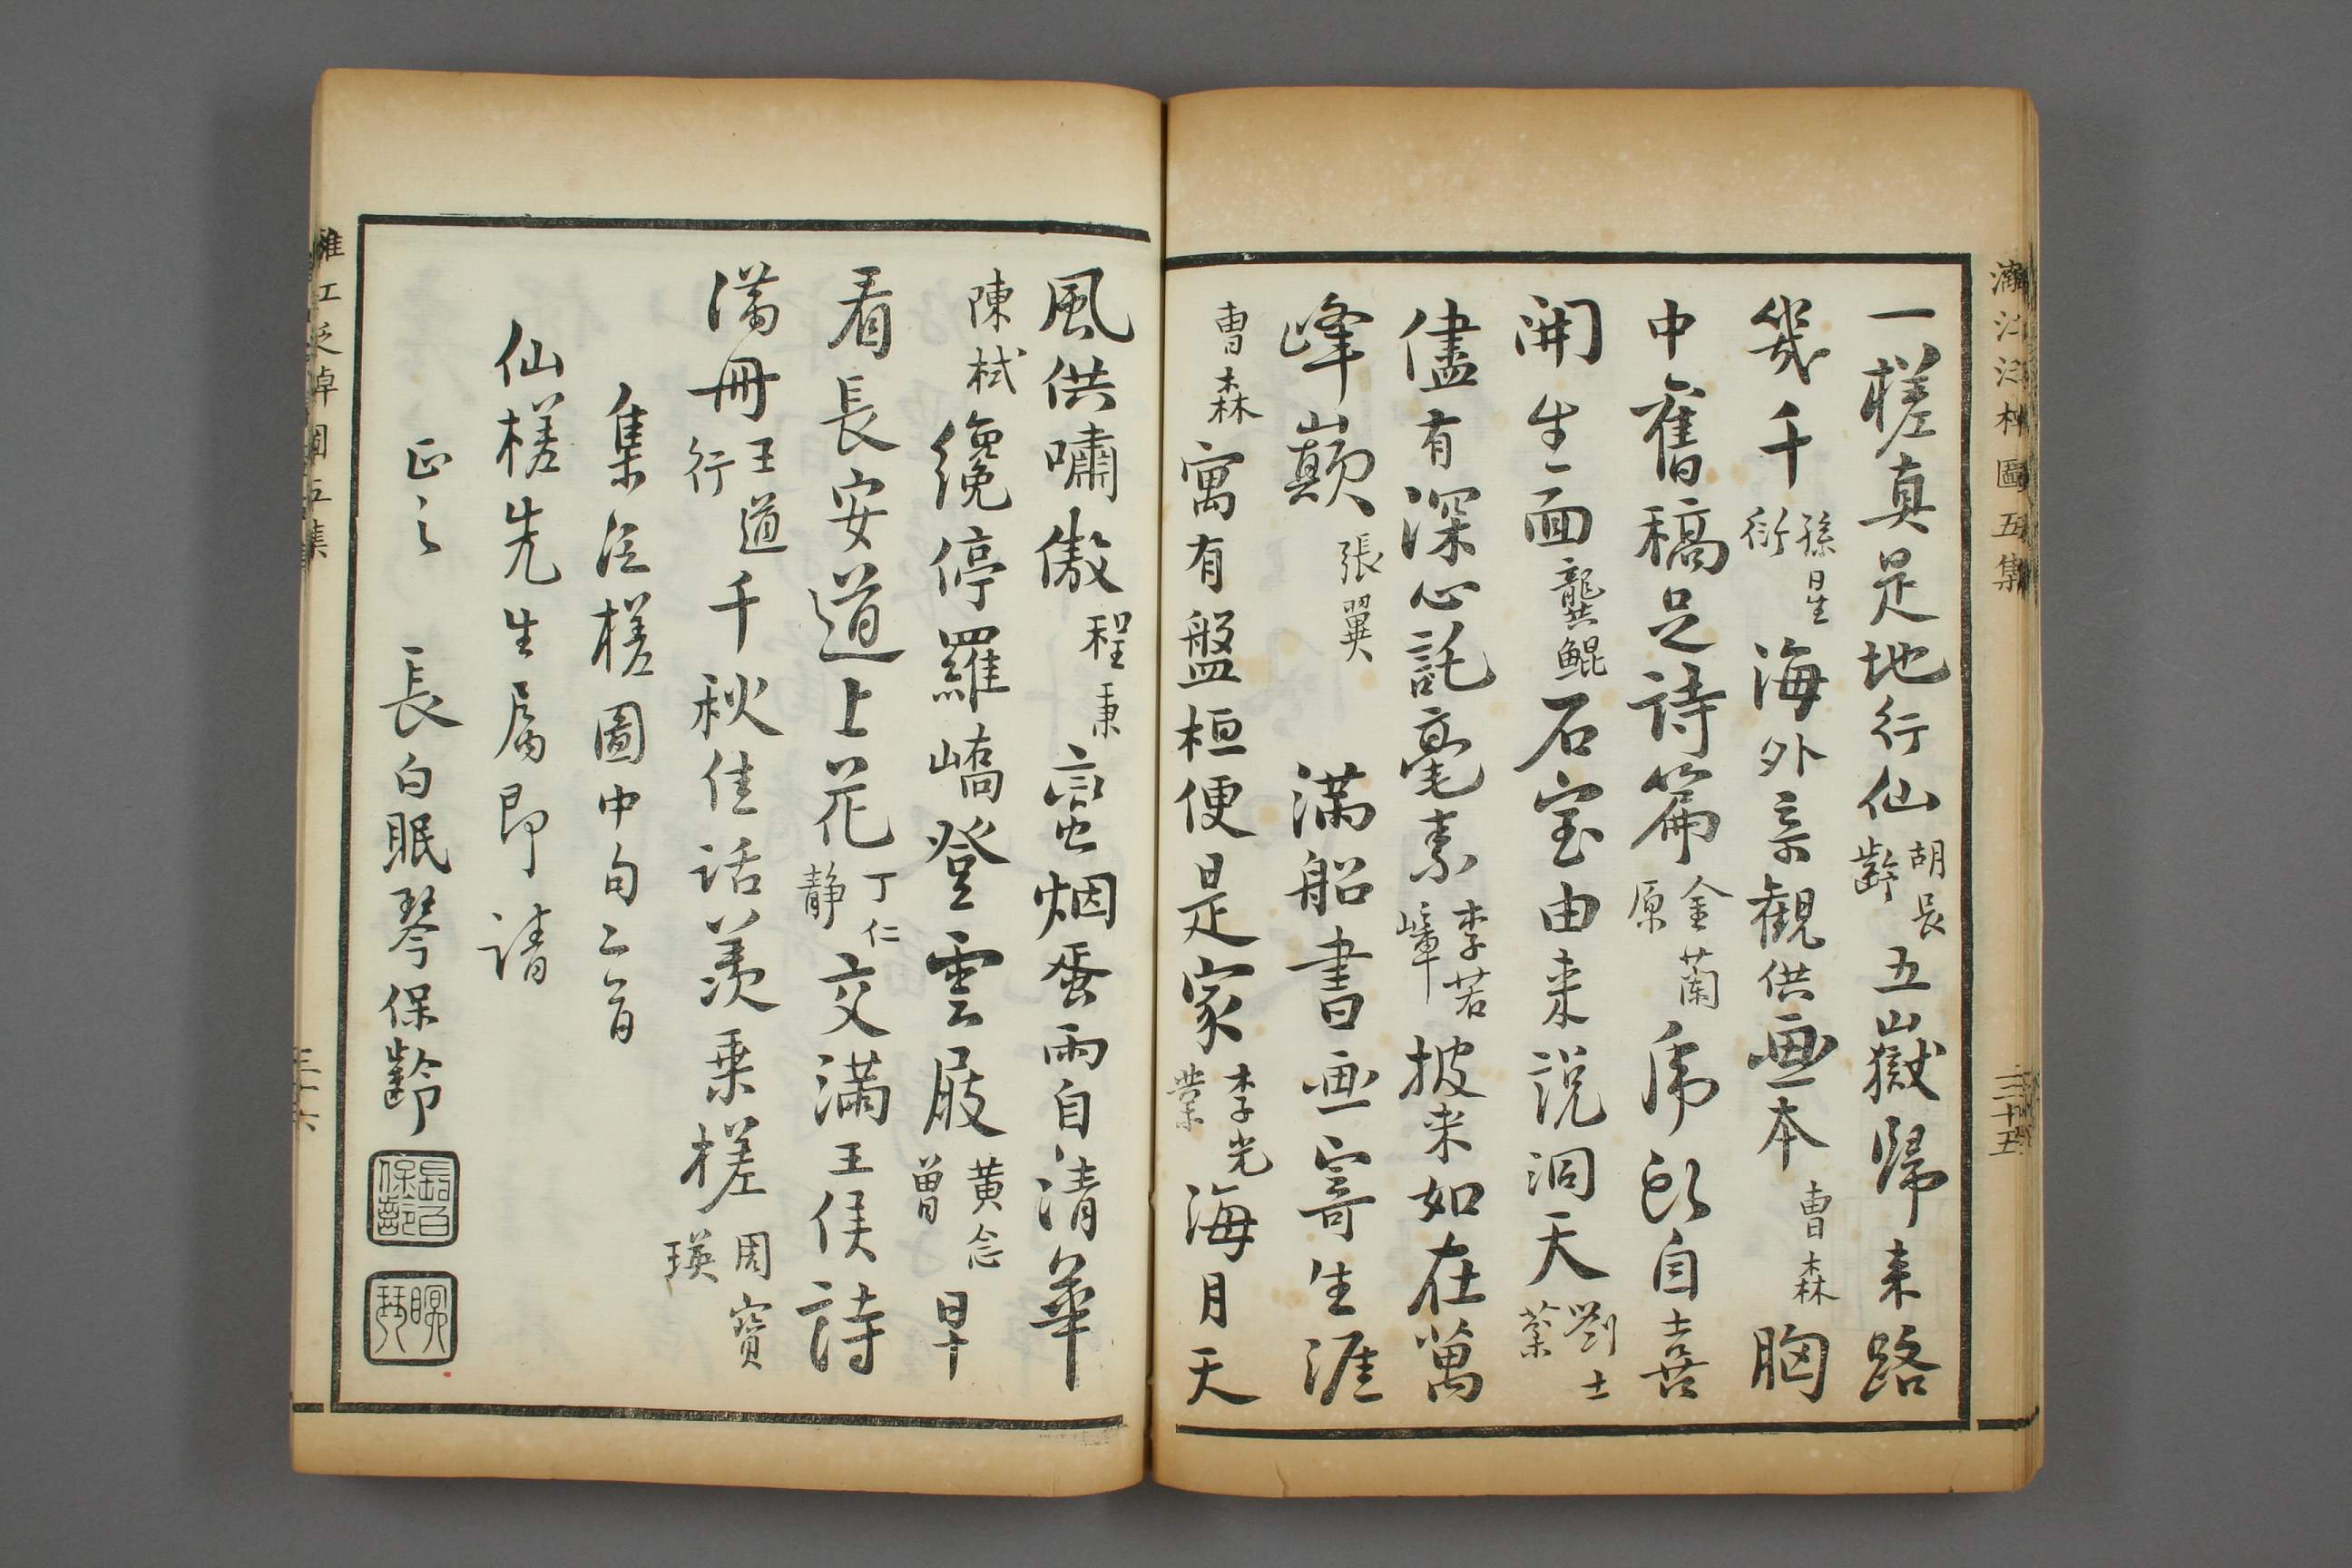 一槎真是地行仙胡長齡五嶽歸来路
幾千孫星衍海外奇觀供畫本曹森胸
中舊稿足詩篇金蘭原虎頭自喜
開生面龔鯤石室由来説洞天劉士棻
儘有深心託毫素李若嶂披来如在萬
峰巔張翼滿船書画寄生涯
曹森寓有盤桓便是家李光業海月天
風供嘯傲程秉蠻烟蜑雨自清華
陳栻纔停羅嶠登雲屐黄念曾早
看長安道上花丁仁静交滿王侯詩
滿冊王道行千秋佳話羨乗槎周寶瑛
集泛槎圖中句二首
仙槎先生属即请
正之 長白眠琴保齡
長白保齡
眠琴
漓江泛棹圖五集
三十五
漓江泛棹圖五集
三十六